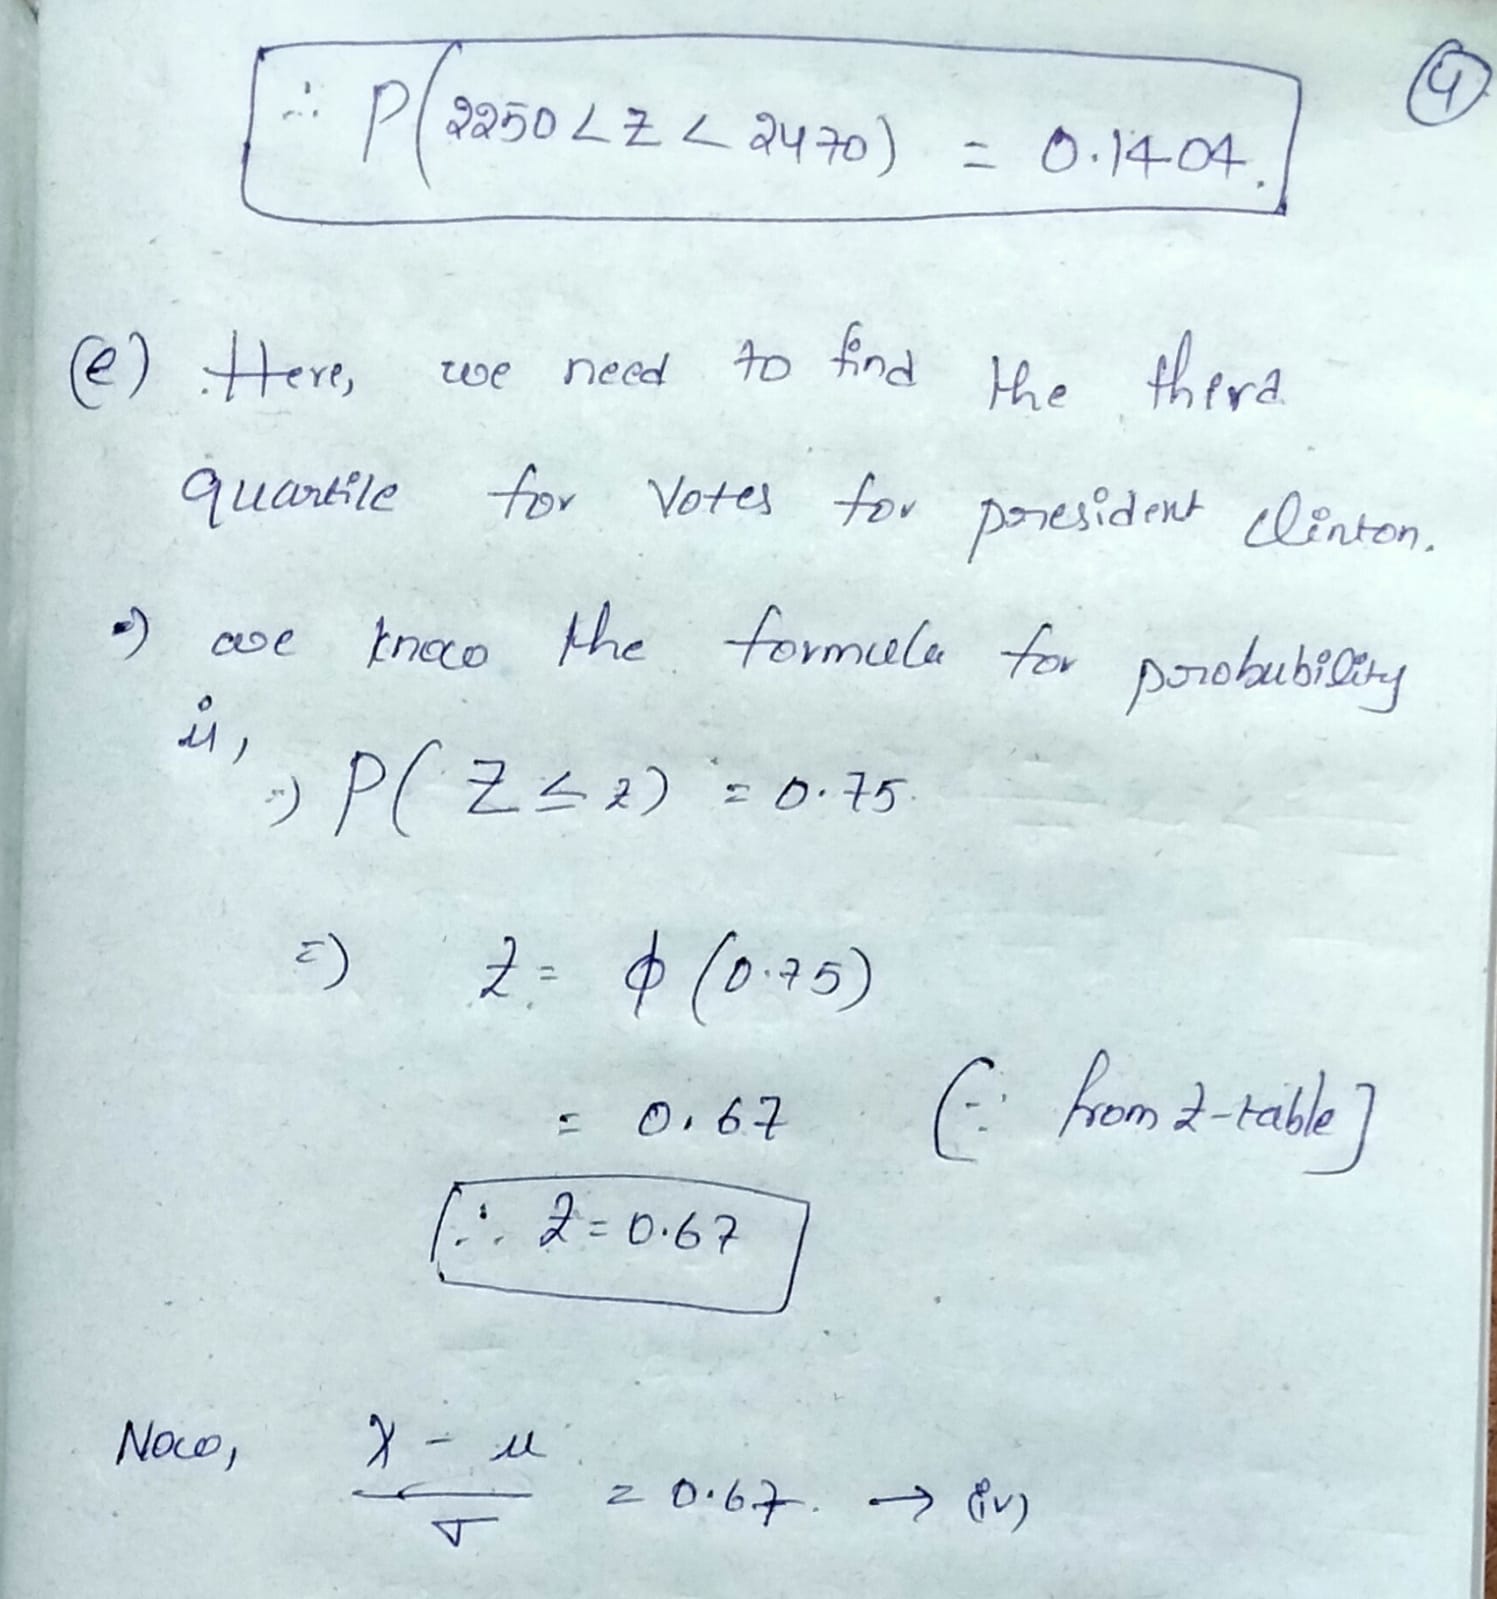 4
∴ P(2250 < Z < 2470) = 0.1404.
(e) Here, we need to find the third
quartile for Votes for president Clinton.
⇒ we know the formula for probability
is,
⇒ P(Z ≤ z) = 0.75.
⇒ z = φ(0.75)
= 0.67 (∵ from z-table]
∴ z = 0.67
Now, X - μ / σ = 0.67. → (iv)